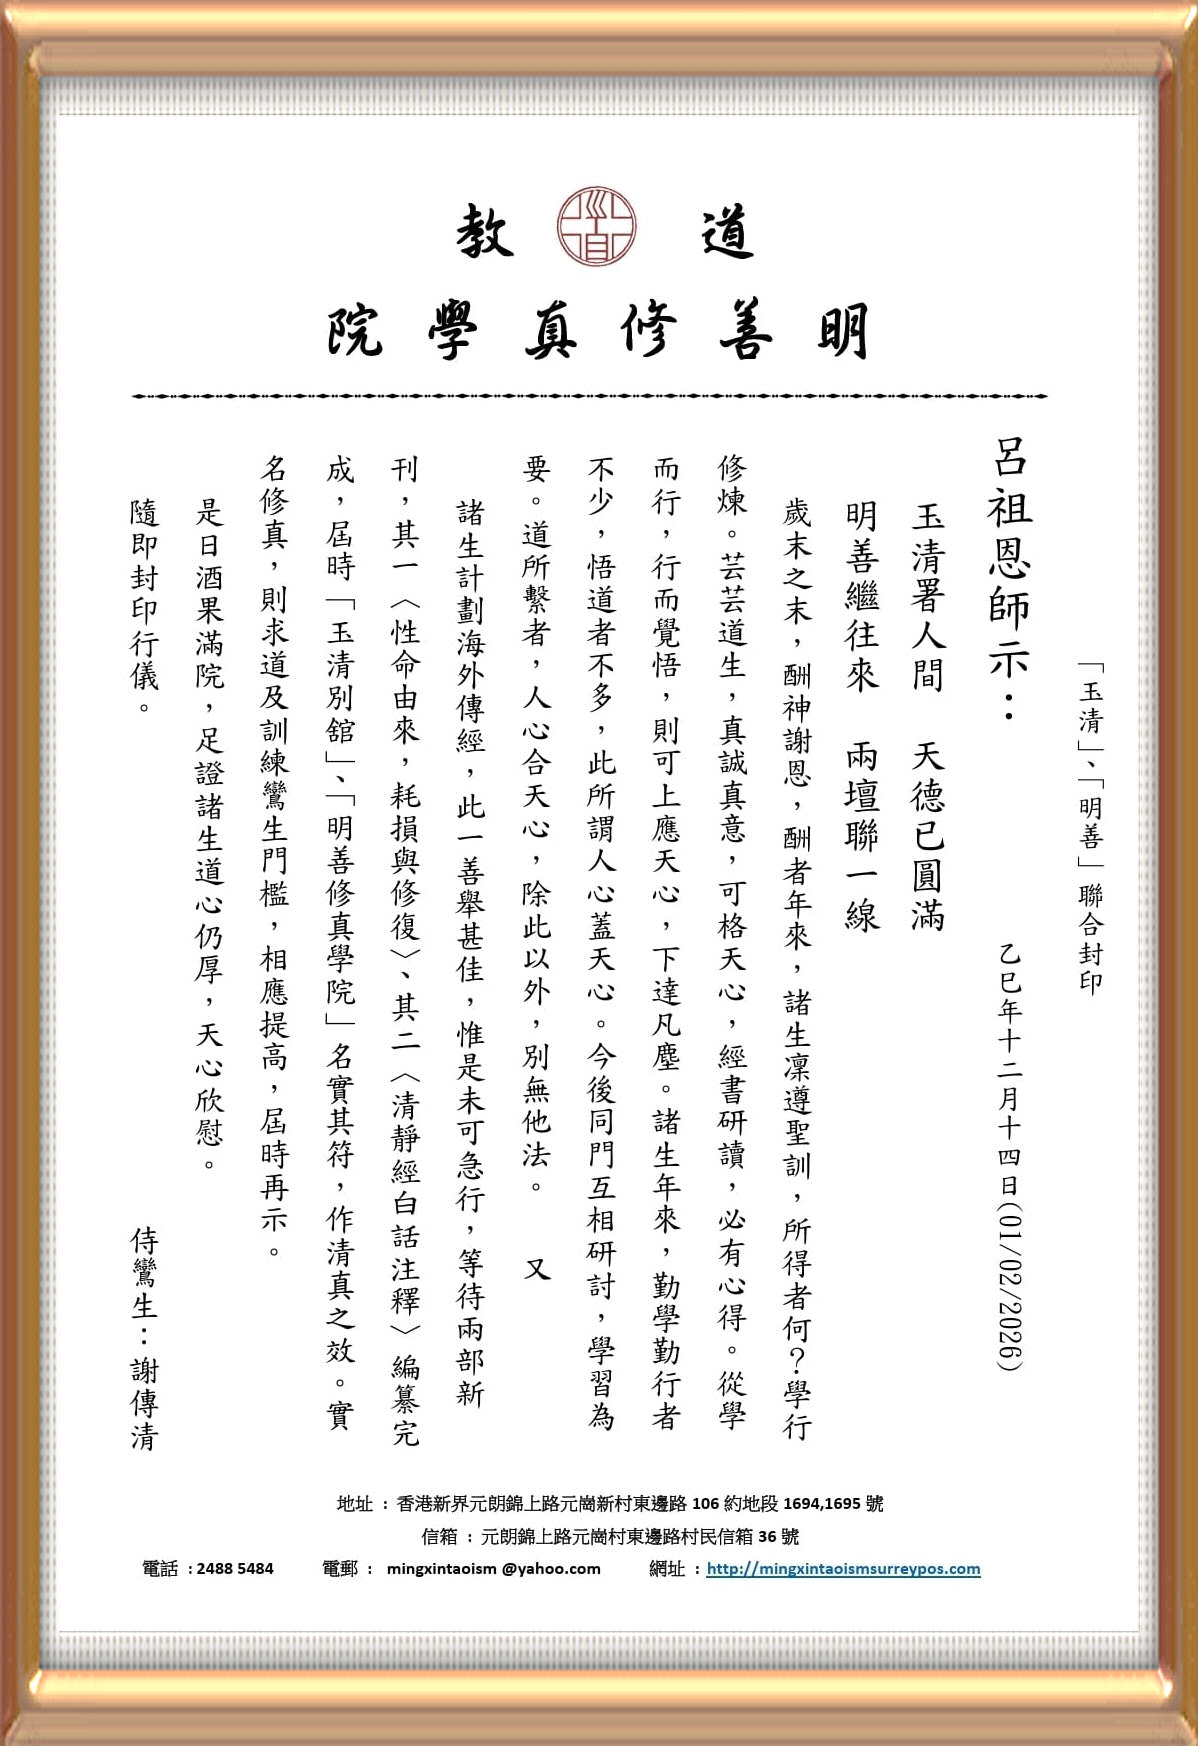 道教
明善修真學院
「玉清」、「明善」聯合封印
乙巳年十二月十四日(01/02/2026)
呂祖恩師示：
玉清署人間　天德已圓滿
明善繼往來　兩壇聯一線
歲末之末，酬神謝恩，酬者年來，諸生凜遵聖訓，所得者何？學行
修煉。芸芸道生，真誠真意，可格天心，經書研讀，必有心得。從學
而行，行而覺悟，則可上應天心，下達凡塵。諸生年來，勤學勤行者
不少，悟道者不多，此所謂人心蓋天心。今後同門互相研討，學習為
要。道所繫者，人心合天心，除此以外，別無他法。　又
諸生計劃海外傳經，此一善舉甚佳，惟是未可急行，等待兩部新
刊，其一〈性命由來，耗損與修復〉、其二〈清靜經白話注釋〉編纂完
成，屆時「玉清別舘」、「明善修真學院」名實其符，作清真之效。實
名修真，則求道及訓練鸞生門檻，相應提高，屆時再示。
是日酒果滿院，足證諸生道心仍厚，天心欣慰。
隨即封印行儀。
侍鸞生：謝傳清
地址 : 香港新界元朗錦上路元崗新村東邊路 106 約地段 1694,1695 號
信箱 : 元朗錦上路元崗村東邊路村民信箱 36 號
電話 : 2488 5484　電郵 : mingxintaoism @yahoo.com　網址 : http://mingxintaoismsurreypos.com